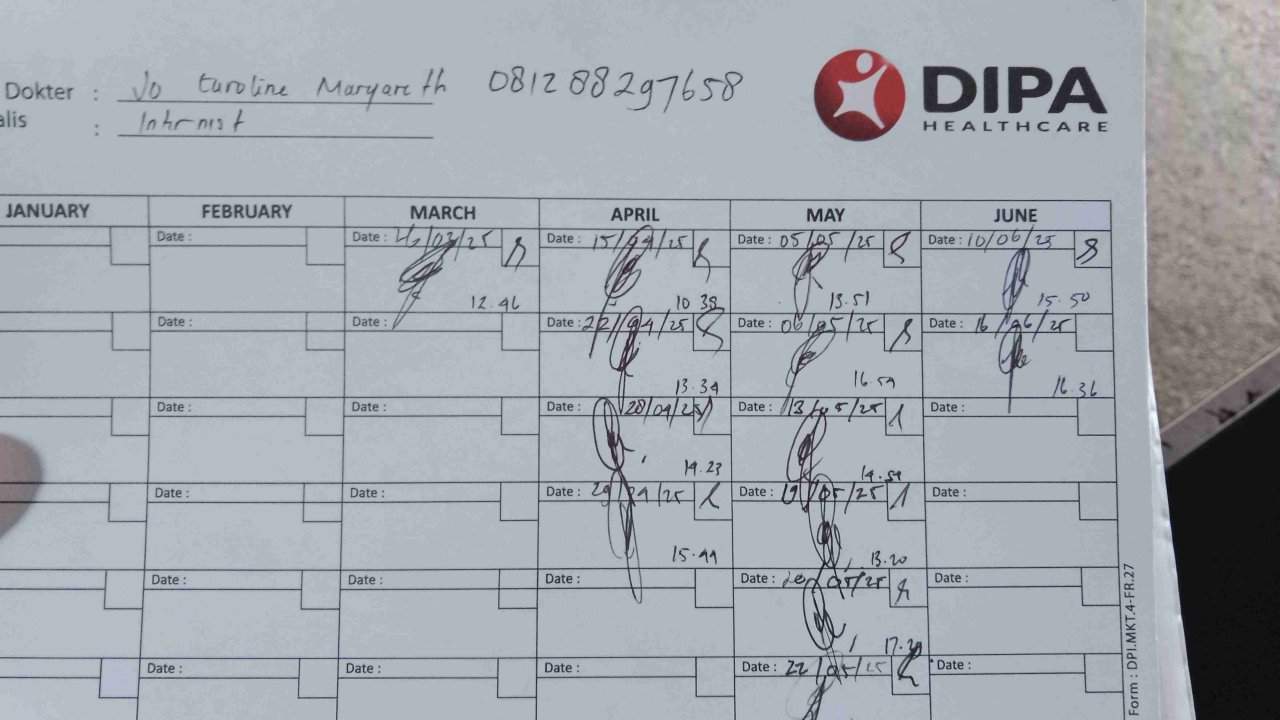 Dokter : Jo Caroline Maryareth 081288297658
alis : Internist
DIPA
HEALTHCARE
JANUARY FEBRUARY MARCH APRIL MAY JUNE
Date : Date : /03/25 Date : 15/04/25 Date : 05/05/25 Date : 10/06/25
12.46 10.38 13.51 15.50
Date : Date : Date : 22/04/25 Date : 06/05/25 Date : 16/06/25
13.34 16.59 16.36
Date : Date : Date : 28/04/25 Date : 13/05/25 Date :
14.23 14.59
Date : Date : Date : 29/04/25 Date : 19/05/25 Date :
15.44 13.20
Date : Date : Date : Date : 05/25 Date :
Date : Date : Date : Date : 22/05/25 Date :
Form : DPI.MKT.4-FR.27